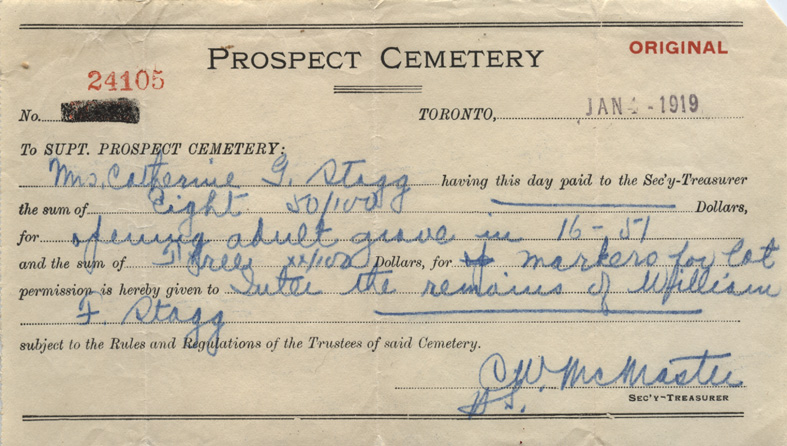 PROSPECT CEMETERY
ORIGINAL
24105
No. TORONTO, JAN - 1919
To SUPT. PROSPECT CEMETERY:
Mrs. Catherine G. Stagg having this day paid to the Sec'y-Treasurer
the sum of Eight 50/100 Dollars,
for opening adult grave in 16 - 51
and the sum of Three xx/100 Dollars, for markers for lot
permission is hereby given to Inter the remains of William
F. Stagg
subject to the Rules and Regulations of the Trustees of said Cemetery.
C.W. McMaster
SEC'Y-TREASURER